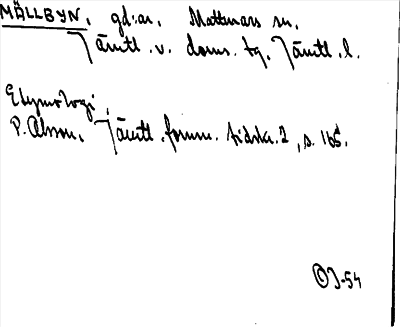 MÄLLBYN, gd:ar, Mattmars sn,
Jämtl. v. doms. tg, Jämtl. l.
Etymologi:
P. Olsson, Jämtl. fornm. tidskr. 2, s. 165.
OJ-54